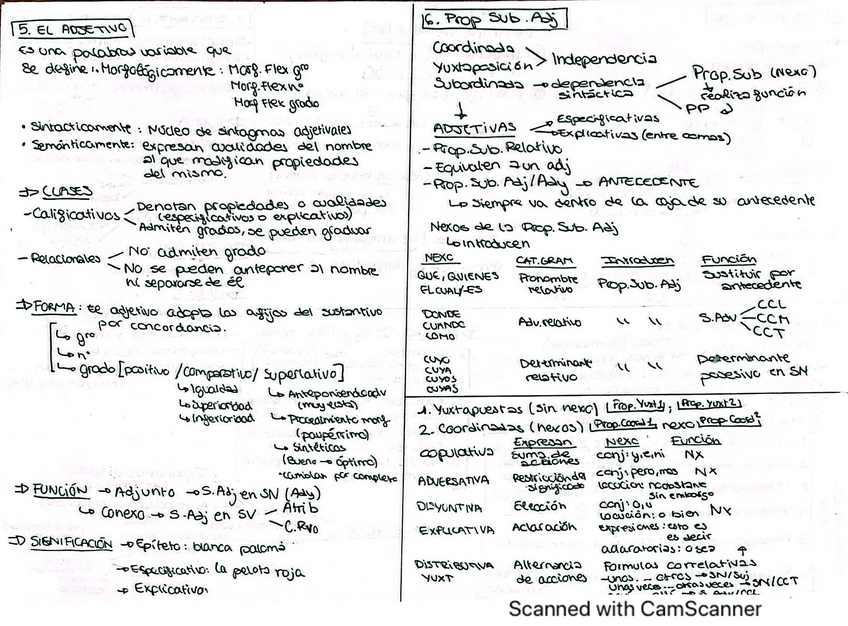 5. EL ADJETIVO
Es una palabra variable que
se define: Morfológicamente: Morf. Flex grº
Morf. Flex nº
Morf Flex grado
• Sintacticamente: Núcleo de sintagmas adjetivales
• Semánticamente: expresan cualidades del nombre
al que modifican propiedades
del mismo.
=> CLASES
- Calificativos
Denotan propiedades o cualidades
(especificativos o explicativo)
Admiten grados, se pueden graduar
- Relacionales
No admiten grado
No se pueden anteponer al nombre
ni separarse de él
=> FORMA: El adjetivo adopta los afijos del sustantivo
por concordancia.
↳ grº
↳ nº
↳ grado [positivo / comparativo / superlativo]
↳ Igualdad
↳ Superioridad
↳ Inferioridad
↳ Anteponiendo adv
(muy listo)
↳ Procedimiento morf
(paupérrimo)
↳ Sintéticos
(Bueno → óptimo)
*cambiar por completo
=> FUNCIÓN → Adjunto → S.Adj en SN (Ady)
↳ Conexo → S.Adj en SV
Atrib
C.Pvo
=> SIGNIFICACIÓN → Epíteto: blanca paloma
→ Especificativo: la pelota roja
→ Explicativo:
6. Prop Sub. Adj
Coordinada
Yuxtaposición
> Independencia
Subordinada → dependencia
sintáctica
Prop. Sub (Nexo)
↓ realiza función
PP
ADJETIVAS
Especificativas
Explicativas (entre comas)
- Prop. Sub. Relativo
- Equivalen a un adj
- Prop. Sub. Adj/Ady → ANTECEDENTE
↳ Siempre va dentro de la caja de su antecedente
Nexos de la Prop. Sub. Adj
↳ Introducen
NEXO CAT. GRAM Introducen Función
QUE, QUIENES
EL CUAL/-ES
Pronombre
relativo
Prop. Sub. Adj
Sustituir por
antecedente
DONDE
CUANDO
COMO
Adv. relativo " " S. Adv
CCL
CCM
CCT
CUYO
CUYA
CUYOS
CUYAS
Determinant
relativo
" "
Determinante
posesivo en SN
1. Yuxtapuestas (sin nexo) [Prop. Yuxt1]; [Prop. Yuxt2]
2. Coordinadas (nexos) [Prop. Coord1] nexo [Prop Coord2]
Expresan Nexo Función
COPULATIVA Suma de
acciones
conj: y, e, ni NX
ADVERSATIVA Restricción del
significado
conj: pero, mas NX
locucion: no obstante
sin embargo
DISYUNTIVA Elección conj: o, u
locución: o bien NX
EXPLICATIVA Aclaración expresiones: esto es
es decir
aclaratorias: o sea
DISTRIBUTIVA
YUXT
Alternancia
de acciones
Formulas correlativas
-unos... otros → SN/Suj
Unas veces... otras veces → SN/CCT
Scanned with CamScanner